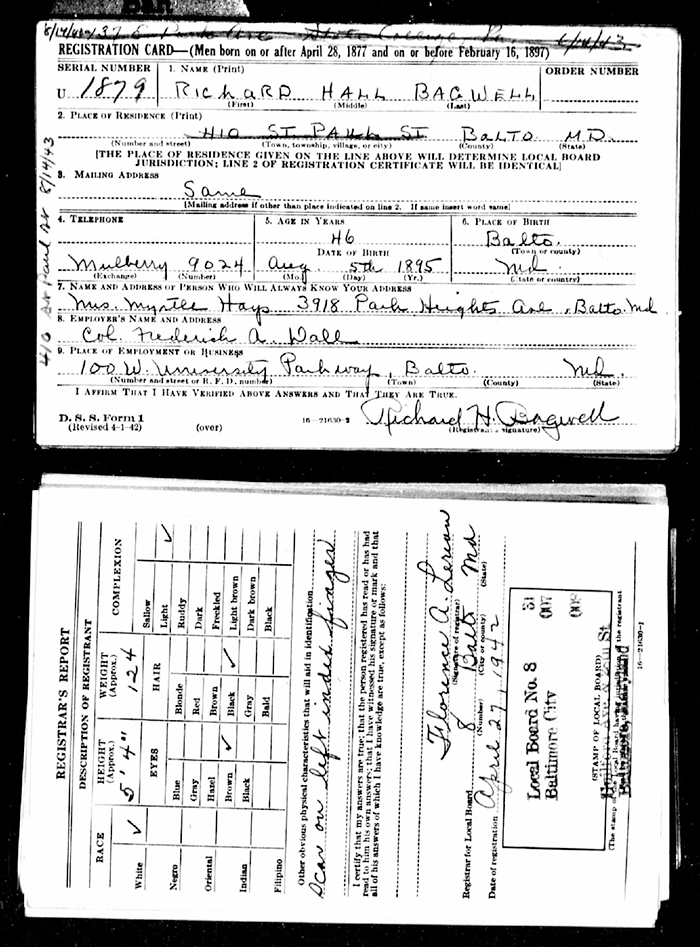 8/14/42 - 137 E Park Ave State College, Pa. 6/14/43
REGISTRATION CARD—(Men born on or after April 28, 1877 and on or before February 16, 1897)
SERIAL NUMBER 1. NAME (Print) ORDER NUMBER
U 1879 RICHARD HALL BAGWELL
(First) (Middle) (Last)
2. PLACE OF RESIDENCE (Print)
410 ST PAUL ST BALTO. M.D.
(Number and street) (Town, township, village, or city) (County) (State)
[THE PLACE OF RESIDENCE GIVEN ON THE LINE ABOVE WILL DETERMINE LOCAL BOARD
JURISDICTION; LINE 2 OF REGISTRATION CERTIFICATE WILL BE IDENTICAL]
3. MAILING ADDRESS
Same
[Mailing address if other than place indicated on line 2. If same insert word same]
4. TELEPHONE 5. AGE IN YEARS 6. PLACE OF BIRTH
46 Balto.
DATE OF BIRTH (Town or county)
Mulberry 9024 Aug. 5th 1895 Md.
(Exchange) (Number) (Mo.) (Day) (Yr.) (State or country)
7. NAME AND ADDRESS OF PERSON WHO WILL ALWAYS KNOW YOUR ADDRESS
Mrs. Myrtle Hays 3918 Park Heights Ave., Balto. Md
8. EMPLOYER'S NAME AND ADDRESS
Col. Frederick A. Dall
9. PLACE OF EMPLOYMENT OR BUSINESS
100 W. University Parkway, Balto. Md.
(Number and street or R. F. D. number) (Town) (County) (State)
I AFFIRM THAT I HAVE VERIFIED ABOVE ANSWERS AND THAT THEY ARE TRUE.
D. S. S. Form 1
(Revised 4-1-42) (over) 16—21630-2 Richard H. Bagwell
(Registrant's signature)
410 St Paul St 8/14/43
REGISTRAR'S REPORT
DESCRIPTION OF REGISTRANT
RACE HEIGHT (Approx.) WEIGHT (Approx.) COMPLEXION
5' 4" 124
White ✓ EYES HAIR Sallow
Negro Blue Blonde Light ✓
Oriental Gray Red Ruddy
Indian Hazel Brown Dark
Filipino Brown ✓ Black ✓ Freckled
Black Gray Light brown
Bald Dark brown
Black
Other obvious physical characteristics that will aid in identification
Scar on left index finger
I certify that my answers are true; that the person registered has read or has had
read to him his own answers; that I have witnessed his signature or mark and that
all of his answers of which I have knowledge are true, except as follows:
Florence A.
(Signature of registrar)
Registrar for Local Board 8 Balto Md
(Number) (City or county) (State)
Date of registration April 27, 1942
Local Board No. 8 31
Baltimore City 007
008
(STAMP OF LOCAL BOARD)
16—21630-1